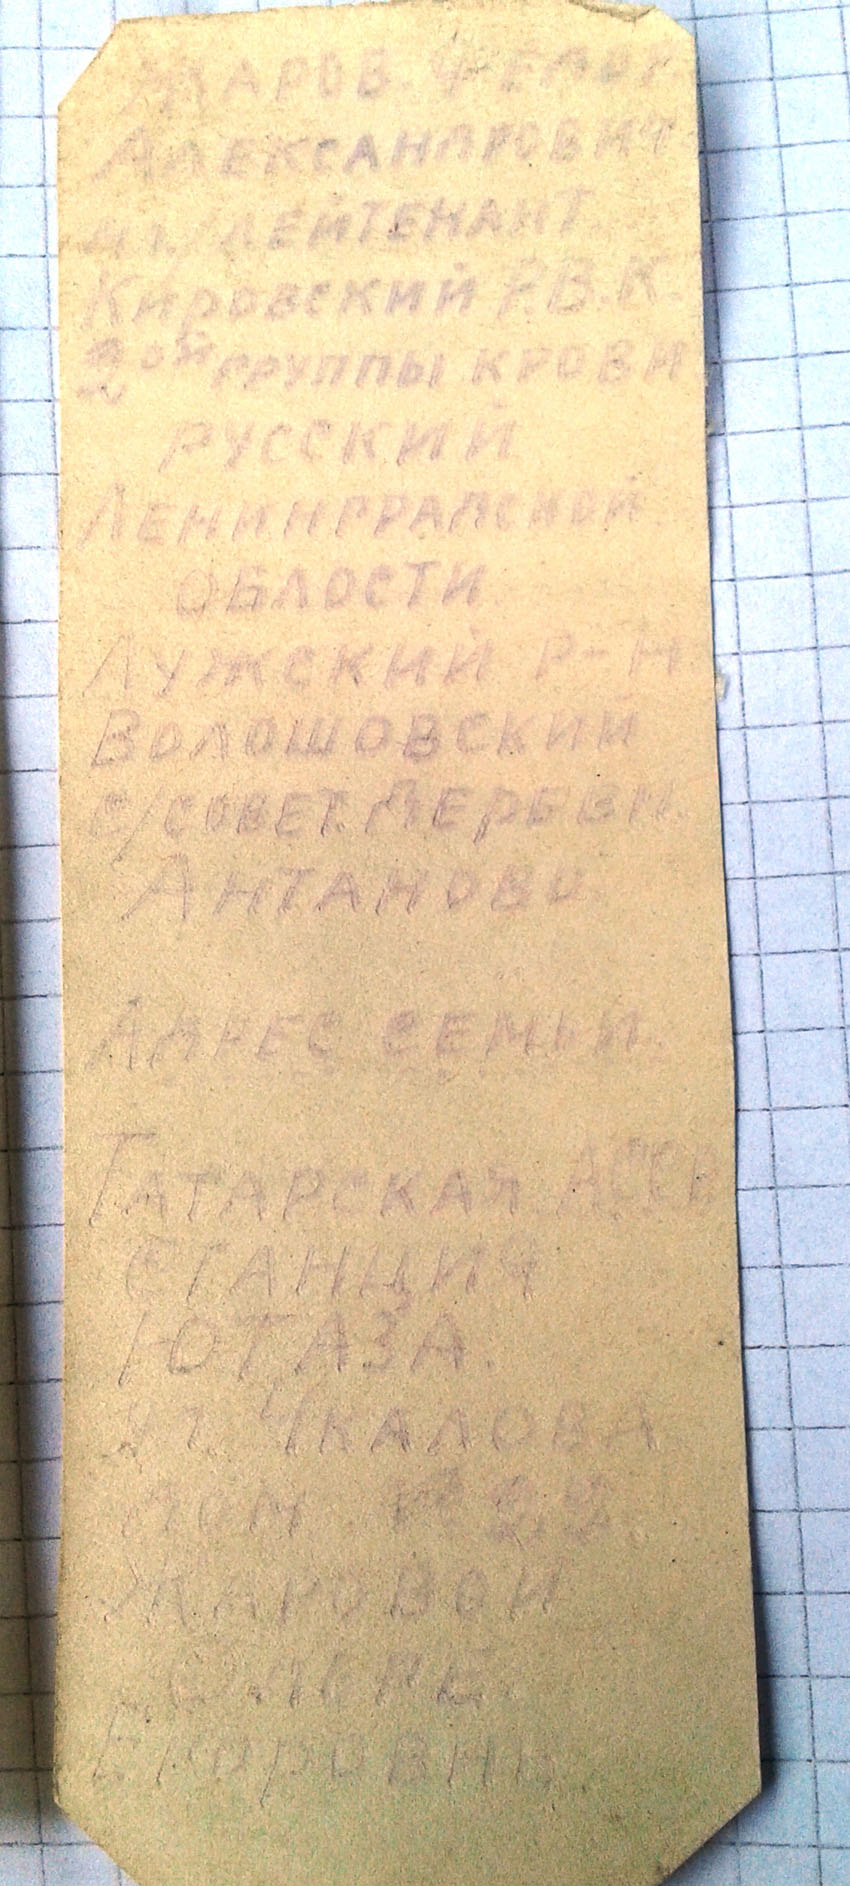 ЖАРОВ. ФЕДОР.
АЛЕКСАНДРОВИЧ
МЛ./ЛЕЙТЕНАНТ.
КИРОВСКИЙ Р.В.К.
2ОЙ ГРУППЫ КРОВИ
РУССКИЙ
ЛЕНИНГРАДСКОЙ
ОБЛОСТИ
ЛУЖСКИЙ Р-Н
ВОЛОШОВСКИЙ
С/СОВЕТ. ДЕРЕВН.
АНТАНОВО
АДРЕС СЕМЬИ.
ТАТАРСКАЯ АССР
СТАНЦИЯ
ЮТАЗА.
УЛ ЧКАЛОВА
ДОМ №
ЖАРОВОЙ
ОЛЬГЕ.
ЕГОРОВНЕ